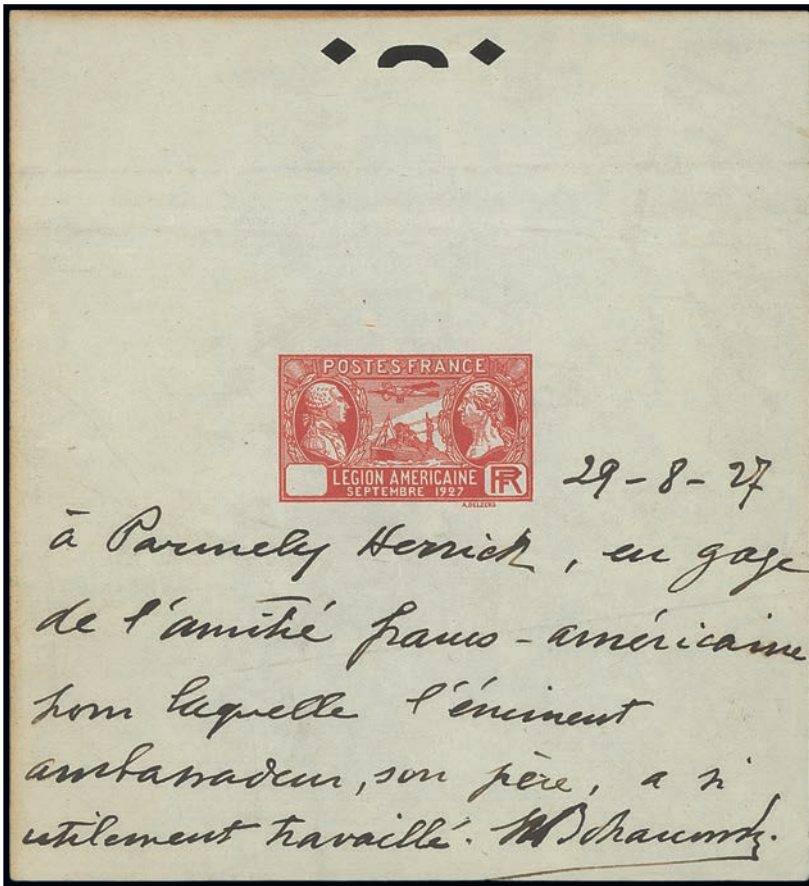 POSTES·FRANCE
LEGION AMERICAINE
SEPTEMBRE 1927
RF
A.DELZERS
29-8-27
à Parmely Herrick, en gage
de l'amitié franco-américaine
pour laquelle l'éminent
ambassadeur, son père, a si
utilement travaillé. M Bokanowski.